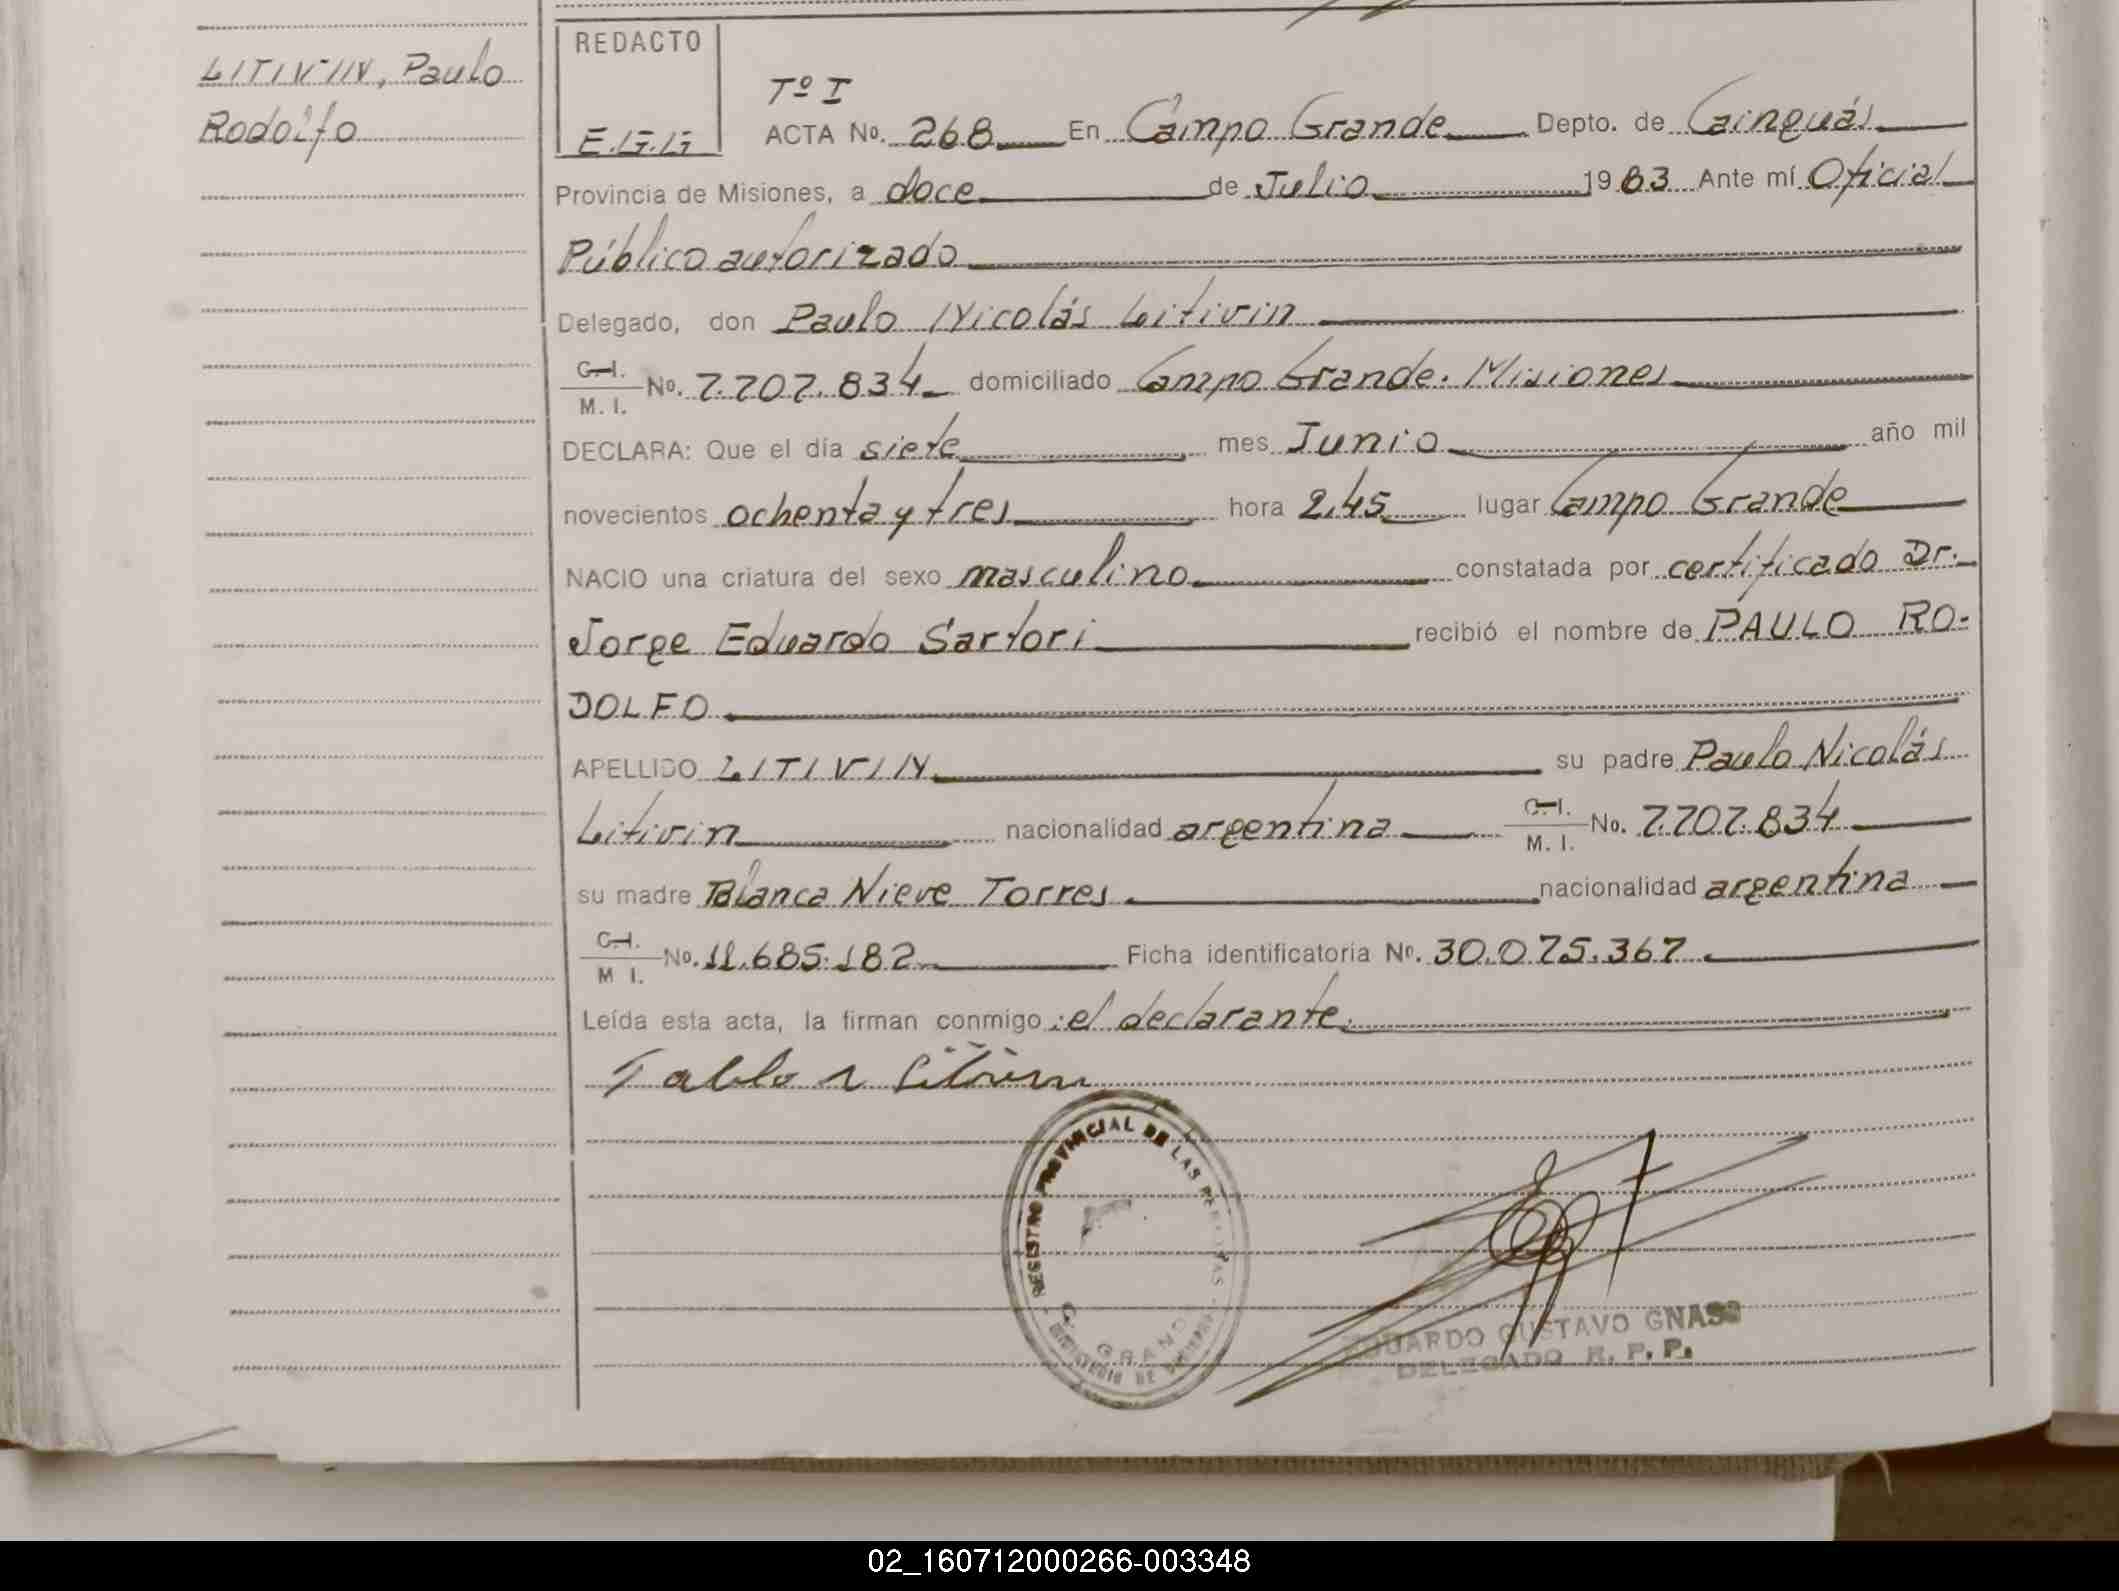 LITIVIN, Paulo
Rodolfo
REDACTO
E.G.G
Tº I
ACTA No. 268 En Campo Grande Depto. de Cainguás
Provincia de Misiones, a doce de Julio 1983 Ante mí Oficial
Público autorizado
Delegado, don Paulo Nicolás Litivin
C.I.
M. I. No. 7.707.834 domiciliado Campo Grande. Misiones
DECLARA: Que el día siete mes Junio año mil
novecientos ochenta y tres hora 2,45 lugar Campo Grande
NACIO una criatura del sexo masculino constatada por certificado Dr.
Jorge Eduardo Sartori recibió el nombre de PAULO RO-
DOLFO
APELLIDO LITIVIN su padre Paulo Nicolás
Litivin nacionalidad argentina C.I. M. I. No. 7.707.834
su madre Blanca Nieve Torres nacionalidad argentina
C.I.
M I. No. 11.685.182 Ficha identificatoria No. 30.075.367
Leída esta acta, la firman conmigo: el declarante.
REGISTRO PROVINCIAL DE LAS PERSONAS
C. GRANDE
MINISTERIO DE GOBIERNO
EDUARDO GUSTAVO GNASS
DELEGADO R. P. P.
02_160712000266-003348